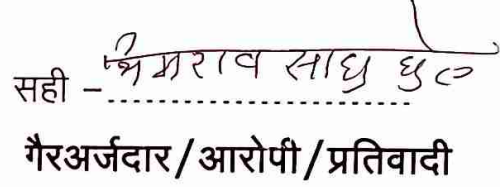 सही – भिमराव साधु धुळे
गैरअर्जदार/आरोपी/प्रतिवादी